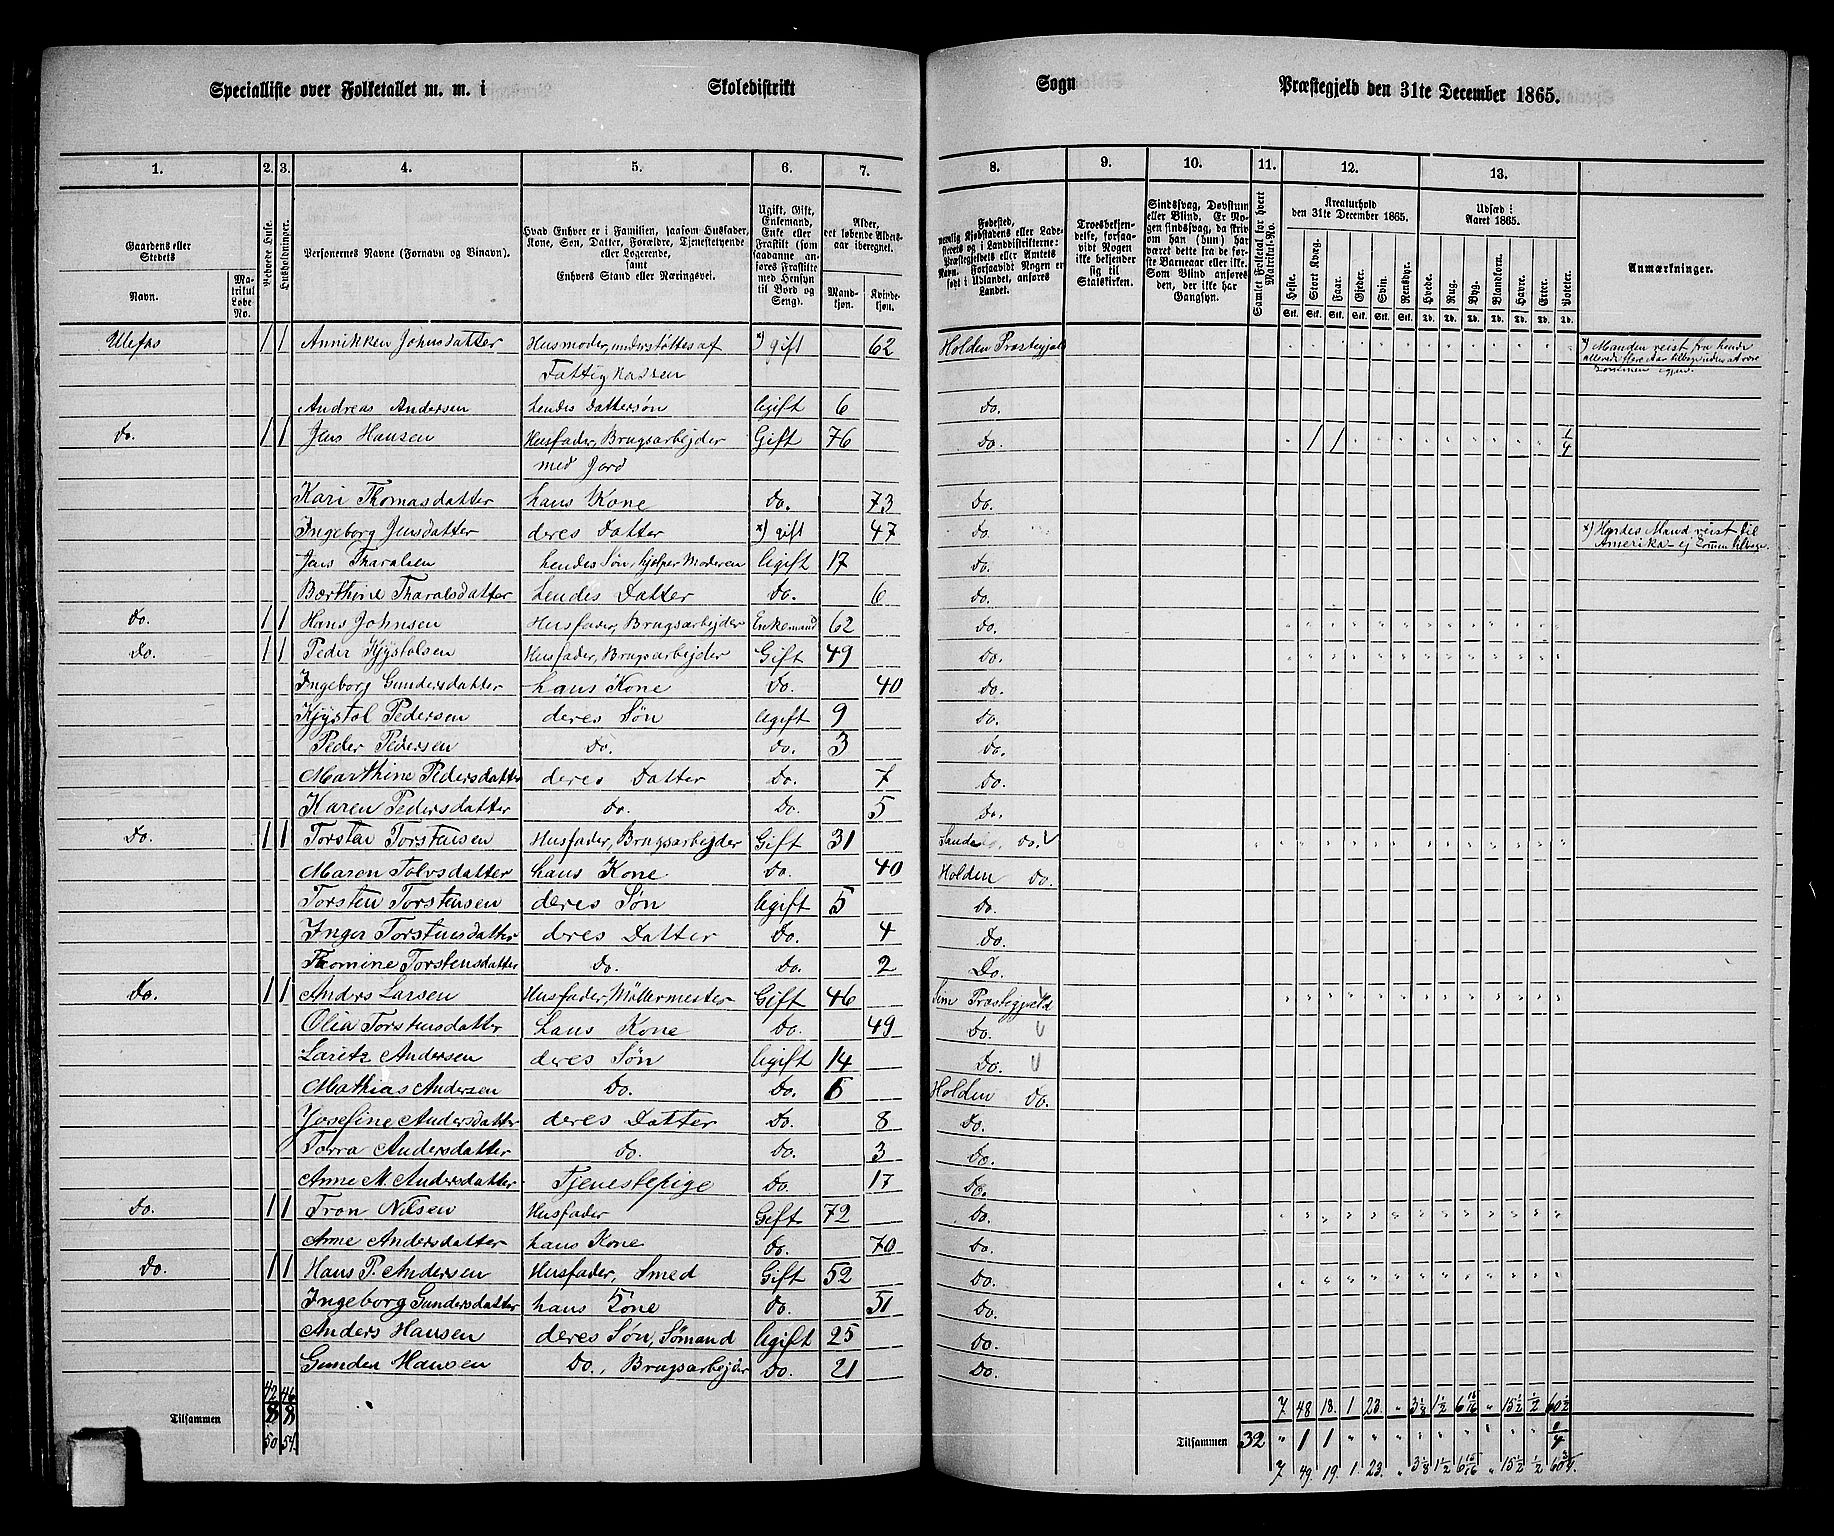 Specialliste over Folketallet m. m. i Skoledistrikt Sogn Præstegjeld den 31te December 1865.
1. 2. 3. 4. 5. 6. 7. 8. 9. 10. 11. 12. 13.
Gaardens eller Stedets
Navn.
Matrikul Løbe-No.
Beboede Huse.
Husholdninger.
Personernes Navne (Fornavn og Binavn).
Hvad Enhver er i Familien, saasom Husfader, Kone, Søn, Datter, Forældre, Tjenestetyende eller Logerende, samt Enhvers Stand eller Næringsvei.
Ugift, Gift, Enkemand, Enke eller Fraskilt (saadanne anføres Fraskilte med Hensyn til Bord og Seng).
Alder, det løbende Aldersaar iberegnet.
Mandkjøn. Kvindekjøn.
Fødested, nemlig Kjøbstadens eller Ladestedets og i Landdistrikterne: Præstegjeldets eller Amtets Navn. Forsaavidt Nogen er født i Udlandet, anføres Landet.
Troesbekjendelse, forsaavidt Nogen ikke bekjender sig til Statskirken.
Sindssvag, Døvstum eller Blind. Er Nogen sindssvag, da skrives om han (hun) har været dette fra de første Barneaar eller ikke. Som Blind anføres den, der ikke har Gangsyn.
Samlet Folketal for hvert Matrikul-No.
Kreaturhold den 31te December 1865.
Heste. Stort Kvæg. Faar. Gjeder. Svin. Rensdyr.
Udsæd i Aaret 1865.
Hvede. Rug. Byg. Blandkorn. Havre. Erter. Poteter.
Anmærkninger.
Ulefos 1 1 Annikken Johnsdatter Husmoder, understøttes af x) gift 62 Holden Præstegjeld x) Manden reist fra hende
Fattigkassen
Andreas Andersen hendes Dattersøn Ugift 6 Do.
Do. 1 1 Jens Hansen Husfader, Brugsarbejder Gift 76 Do. 1 1 1/4
med Jord
Kari Thomasdatter hans Kone Do. 73 Do.
Ingeborg Jensdatter deres Datter x) gift 47 Do. x) Hendes Mand reist til
Amerika
Jens Tharalsen hendes Søn, hjelper Moderen Ugift 17 Do.
Bærthine Tharalsdatter hendes Datter Do. 6 Do.
Do. 1 1 Hans Johnsen Husfader, Brugsarbejder Enkemand 62 Do.
Do. 1 1 Peder Kjystolsen Husfader, Brugsarbejder Gift 49 Do.
Ingeborg Gundersdatter hans Kone Do. 40 Do.
Kjystol Pedersen deres Søn Ugift 9 Do.
Peder Pedersen Do. Do. 3 Do.
Marthine Pedersdatter deres Datter Do. 7 Do.
Karen Pedersdatter Do. Do. 5 Do.
Do. 1 1 Torsten Torstensen Husfader, Brugsarbejder Gift 31 Do.
Maren Tolvsdatter hans Kone Do. 40 Holden Do.
Torsten Torstensen deres Søn Ugift 5 Do.
Inger Torstensdatter deres Datter Do. 4 Do.
Thomine Torstensdatter Do. Do. 2 Do.
Do. 1 1 Anders Larsen Husfader, Møllermester Gift 46 Præstegjeld
Olea Torstensdatter hans Kone Do. 49 Do.
Laritz Andersen deres Søn Ugift 14 Do.
Mathias Andersen Do. Do. Holden Do.
Josefine Andersdatter deres Datter Do. 8 Do.
Torra Andersdatter Do. Do. 3 Do.
Anne M. Andersdatter Tjenestepige Do. 17 Do.
Do. 1 1 Tron Nilsen Husfader Gift 72 Do.
Anne Andersdatter hans Kone Do. 70 Do.
Do. 1 1 Hans P. Andersen Husfader, Smed Gift 52 Do.
Ingeborg Gundersdatter hans Kone Do. 51 Do.
Anders Hansen deres Søn, Sømand Ugift 25 Do.
Gunder Hansen Do., Brugsarbejder Do. 21 Do.
42 46 7 48 18 1 23 " 3 1/8 1 1/2 6 15/16 " 15 1/2 1/2 60 1/2
Tilsammen 8 8 Tilsammen 32 " 1 1 " " " " " " " " " 1/4
50 54 7 49 19 1 23 " 3 1/8 1 1/2 6 15/16 " 15 1/2 1/2 60 3/4